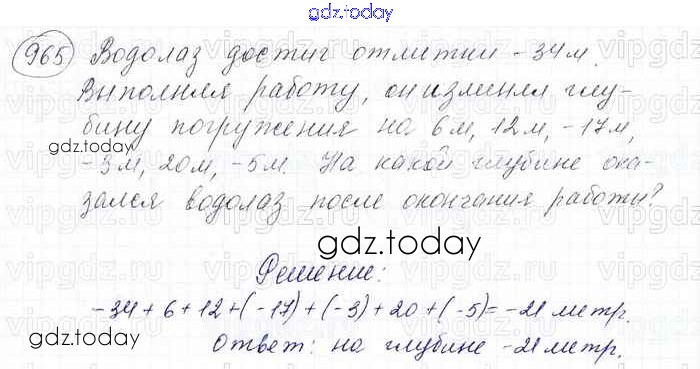 gdz.today
965 Водолаз достиг отметки -34 м.
Выполняя работу, он изменял глу-
бину погружения на 6 м, 12 м, -17 м,
gdz.today
-3 м, 20 м, -5 м. На какой глубине ока-
зался водолаз после окончания работы?
gdz.today
Решение:
-34 + 6 + 12 + (-17) + (-3) + 20 + (-5) = -21 метр.
gdz.today
Ответ: на глубине -21 метр.